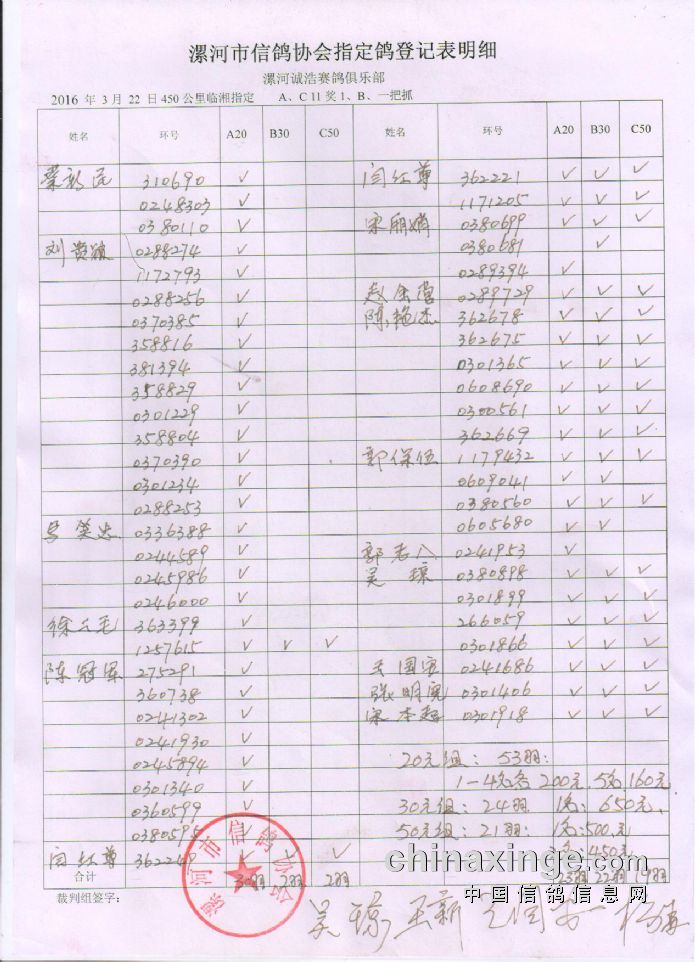 漯河市信鸽协会指定鸽登记表明细
漯河诚浩赛鸽俱乐部
2016 年 3 月 22 日 450 公里临湘指定 A、C 11 奖 1、B、一把抓
姓名 环号 A20 B30 C50 姓名 环号 A20 B30 C50
310690 ✓ 闫红尊 362221 ✓ ✓ ✓
0248303 ✓ 1171205 ✓ ✓ ✓
0380110 ✓ 宋丽娟 0380699 ✓ ✓ ✓
刘 0288274 ✓ 0380681 ✓
1172793 ✓ 0289394 ✓
0288256 ✓ 赵 0289729 ✓ ✓ ✓
0370385 ✓ 陈艳杰 362678 ✓ ✓ ✓
358816 ✓ 362675 ✓ ✓ ✓
381394 ✓ 0301365 ✓ ✓ ✓
358829 ✓ 0608690 ✓ ✓ ✓
0301229 ✓ 0300561 ✓ ✓ ✓
358804 ✓ 362669 ✓ ✓ ✓
0370390 ✓ 郭保伍 1179432 ✓ ✓ ✓
0301234 ✓ 0609041 ✓ ✓
0288253 ✓ 0380560 ✓ ✓ ✓
0336388 ✓ 0605680 ✓ ✓
0244589 ✓ 郭老八 0241953 ✓
0245986 ✓ 吴琼 0380898 ✓ ✓ ✓
0246000 ✓ 0301899 ✓ ✓ ✓
徐二毛 363399 ✓ 266059 ✓ ✓ ✓
1257615 ✓ ✓ ✓ 0301866 ✓ ✓ ✓
陈冠军 275291 ✓ 王国宾 0241686 ✓ ✓ ✓
360738 ✓ 张明宪 0301406 ✓ ✓ ✓
0241302 ✓ 宋本超 0301918 ✓ ✓ ✓
0241930 ✓
0245894 ✓ 20元组: 53羽:
0301340 ✓ 1-4名各 200元, 5名, 160元
0360599 ✓ 30元组: 24羽 1名: 650元,
0380595 ✓ 50元组: 21羽: 1名: 500元
闫红尊 362249 ✓ ✓ ✓ 450元
合计 30羽 2羽 2羽 23羽 22羽 19羽
裁判组签字: 吴琼
漯河市信鸽协会
chinaxinge.com
中国信鸽信息网